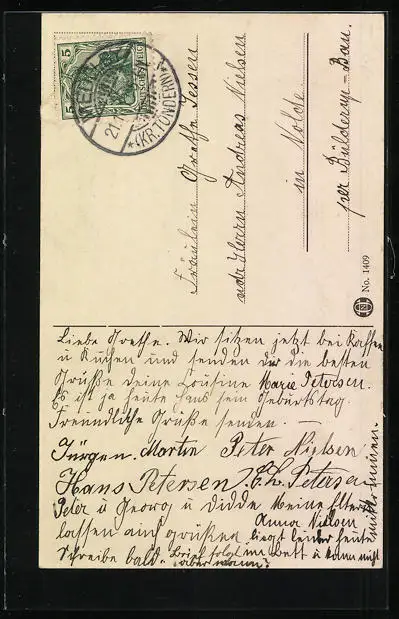 5 5
21.1
*(KR.TONDERN)*
Fräulein Grethe Jessen
adr Herrn Andreas Nielsen
in Nolde
per Bülderup-Bau.
No. 1409
Liebe Grethe. Wir sitzen jetzt bei Kaffee
u Kuchen und senden dir die besten
Grüße deine Cousine Marie Petersen.
Es ist ja heute Hans sein Geburtstag.
Freundliche Grüße senden. —
Jürgen. Martin Peter Nielsen.
Hans Petersen. Petersen
Peter u Georg u Didde Meine Eltern
Anna Nielsen
lassen auch grüßen liegt leider heute
Schreibe bald. Brief folgt im Bett u kann nicht
aber wann?